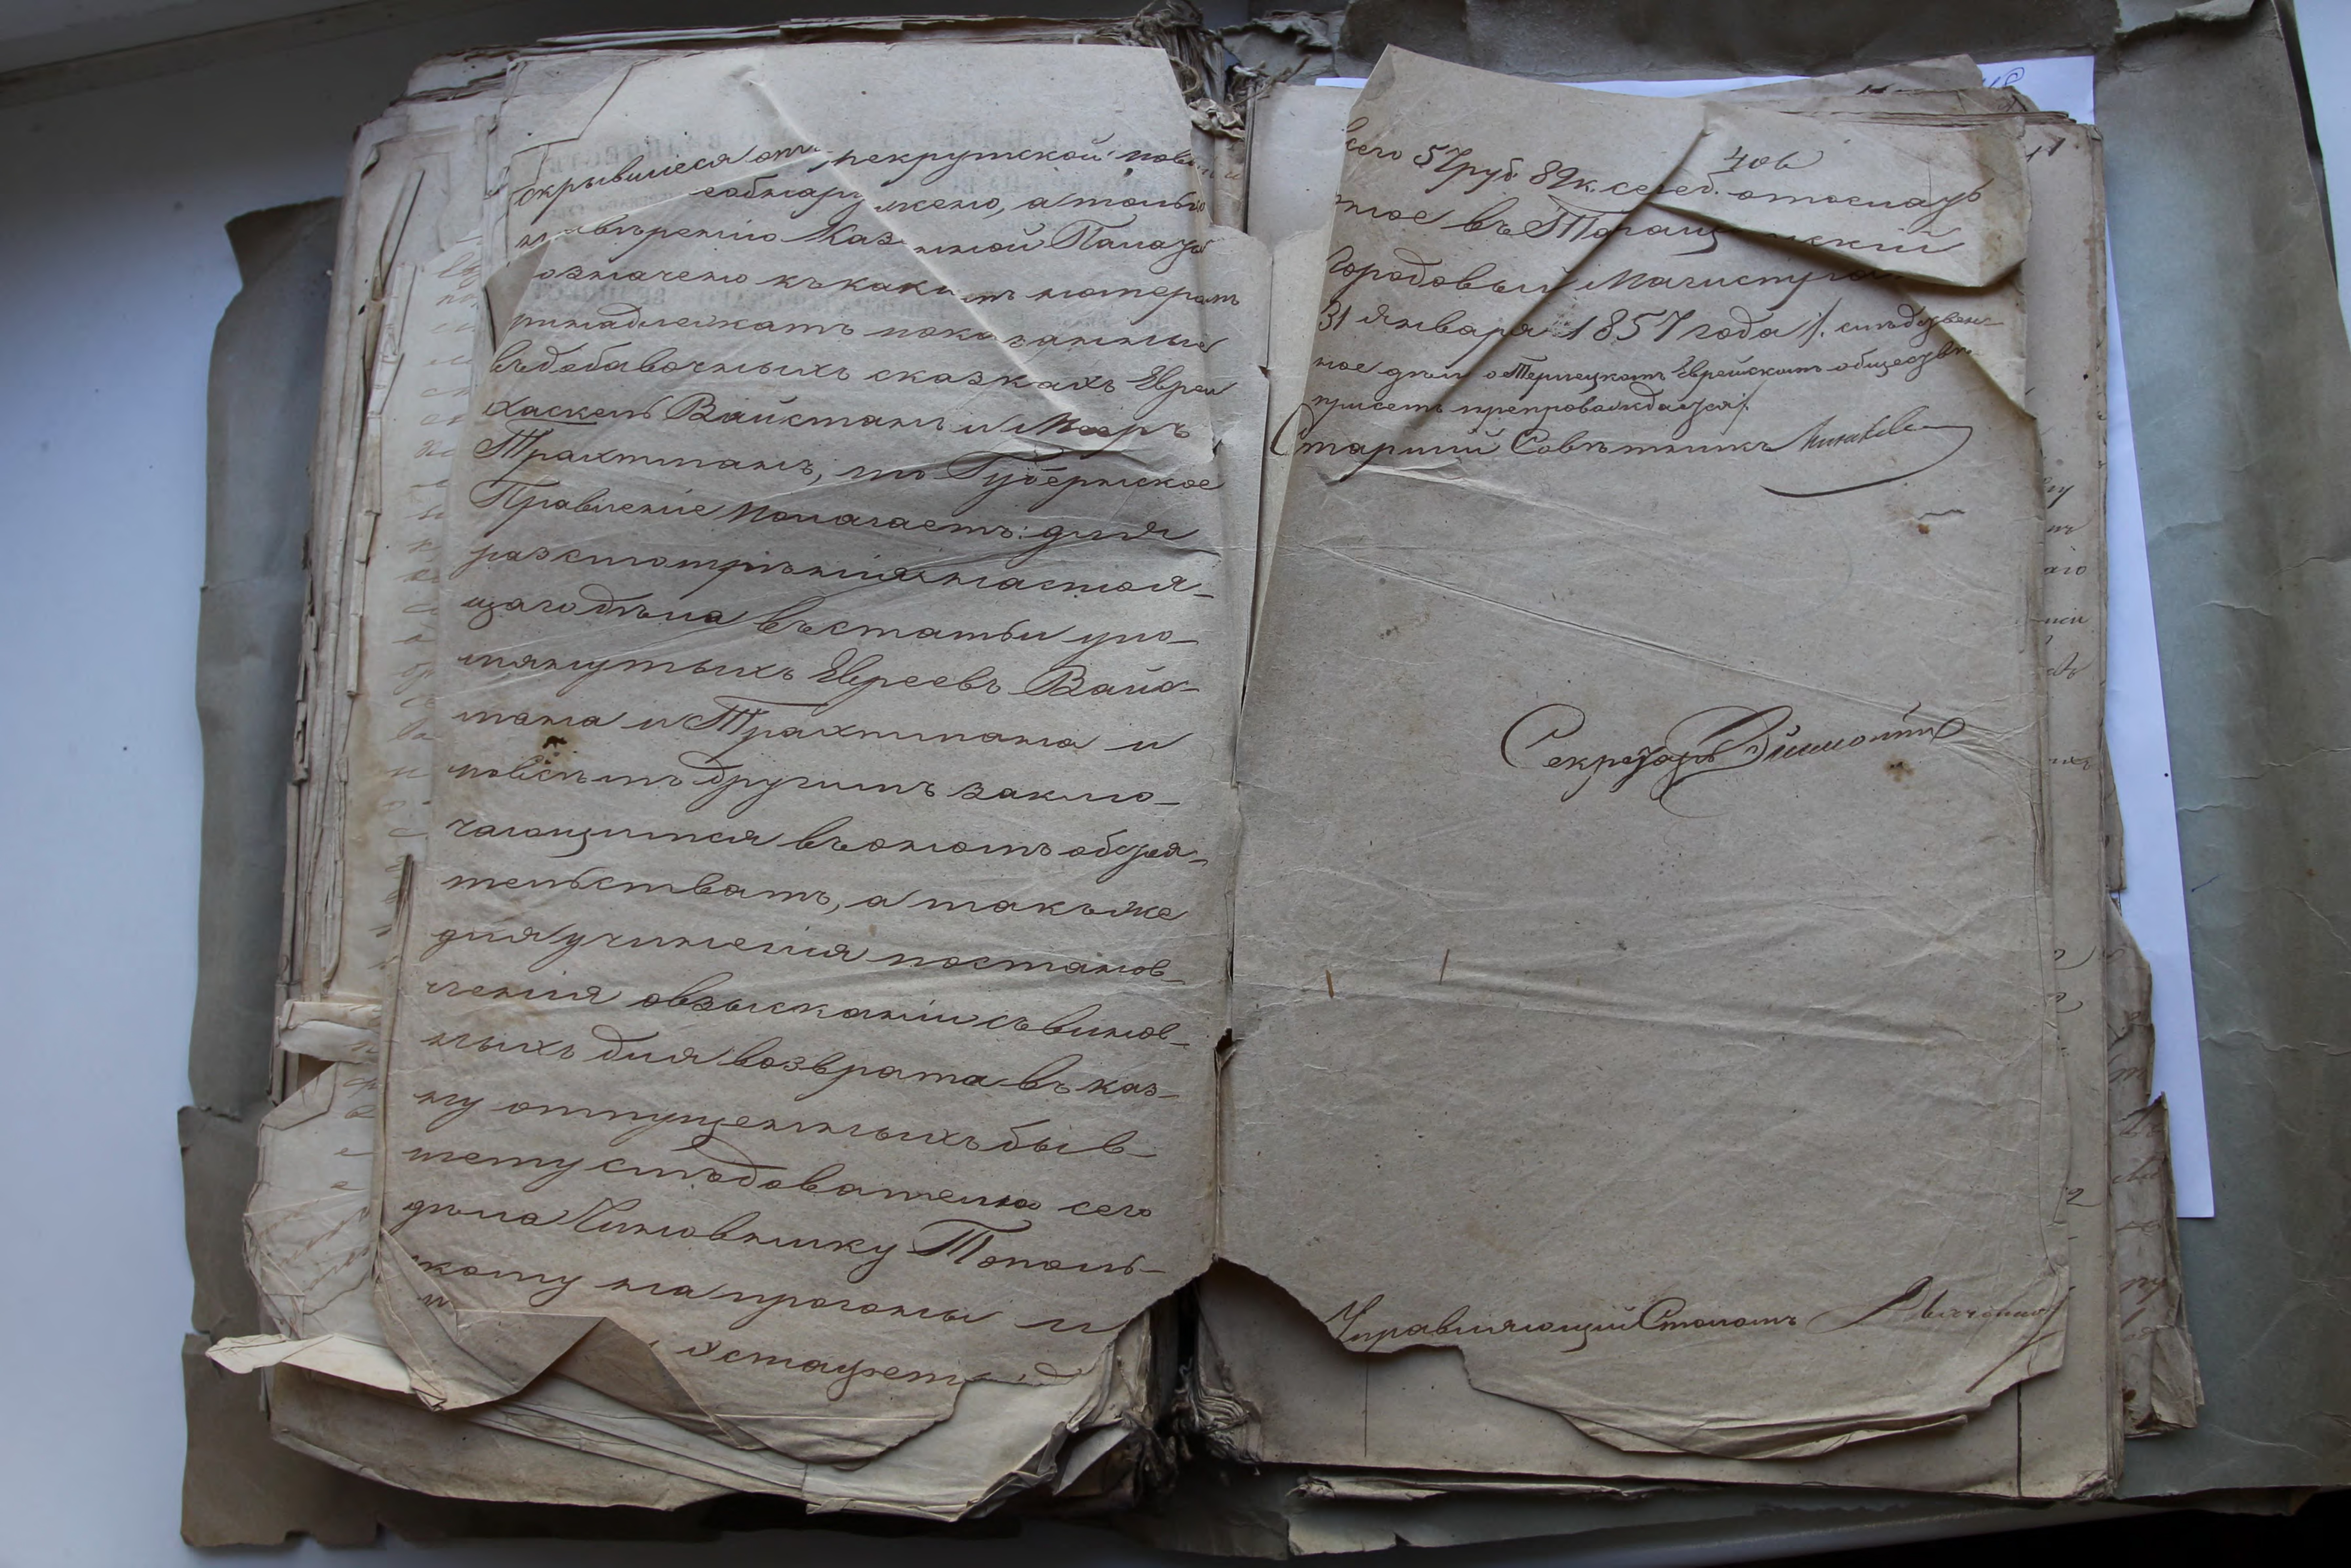 скрывшіеся отъ рекрутской пов
необнаружено, а только
Казенной Палаты
означено къ какимъ номерамъ
принадлежатъ показанные
въ добавочныхъ сказкахъ Евреи
Хаскель Вайсманъ и Мееръ
Трахтманъ, то Губернское
Правленіе полагаетъ: для
разсмотрѣнія настоя-
щаго дѣла въ статьи упо-
мянутыхъ Евреевъ Вайс-
мана и Трахтмана и
по всѣмъ другимъ заклю-
чающимся въ ономъ обстоя-
тельствамъ, а такъ же
для учиненія постанов-
ленія о взысканіи съ винов-
ныхъ для возврата въ каз-
ну отпущенныхъ быв-
шему слѣдователю сего
дѣла Чиновнику Тополь-
кому на прогоны и
406
всего 57 руб. 89 к. сереб. отослать
оное въ
Городовый Магистратъ
31 Января 1857 года /. слѣдствен-
ное дѣло о Еврейскомъ обществѣ
при семъ препровождается /.
Старшій Совѣтникъ
Секретарь
Управляющій Столомъ